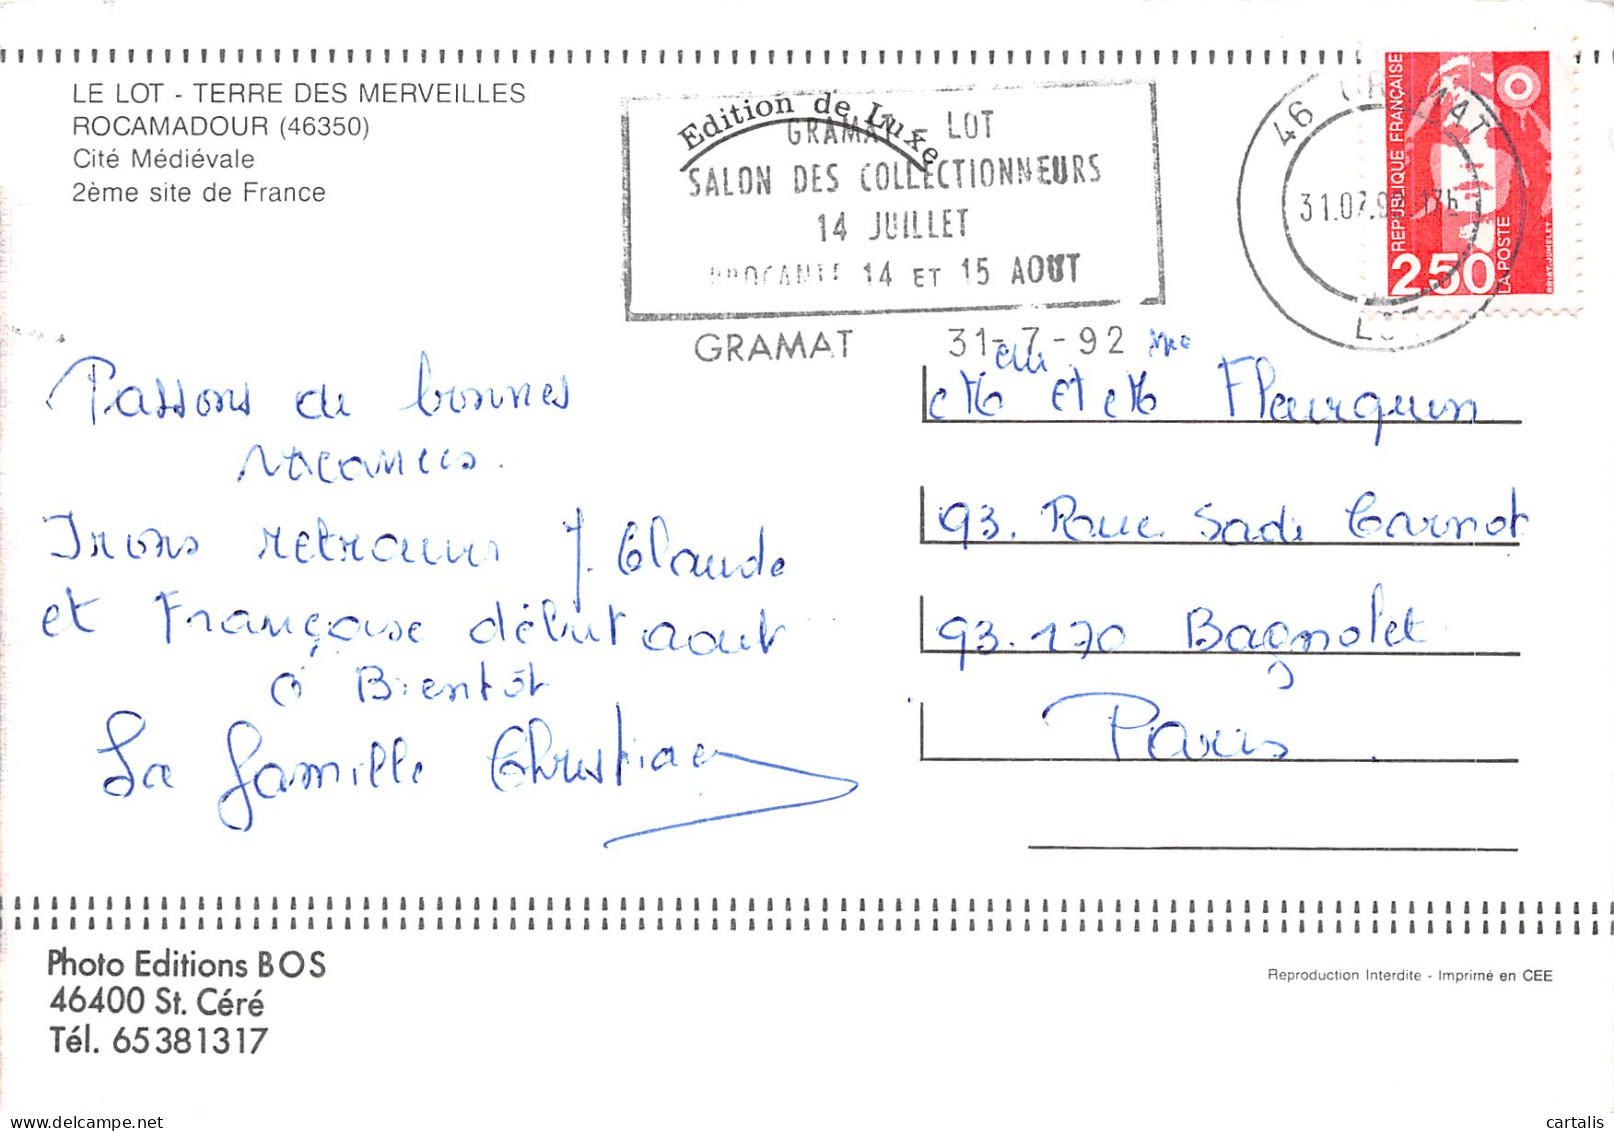 LE LOT - TERRE DES MERVEILLES
ROCAMADOUR (46350)
Cité Médiévale
2ème site de France
Edition de Luxe
GRAMAT - LOT
SALON DES COLLECTIONNEURS
14 JUILLET
BROCANTE 14 ET 15 AOUT
GRAMAT 31-7-92
46 GRAMAT
31.07.92 17h
LOT
REPUBLIQUE FRANÇAISE
2,50
LA POSTE
BRIAT.JUMELET
Passons de bonnes
vacances.
Irons retrouver J. Claude
et Françoise début aout
à Bientôt
La famille Christiaen
et
93. Rue Sadi Carnot
93.170 Bagnolet
Paris.
Photo Editions BOS
46400 St. Céré
Tél. 65381317
Reproduction Interdite - Imprimé en CEE
cartalis
delcampe.net